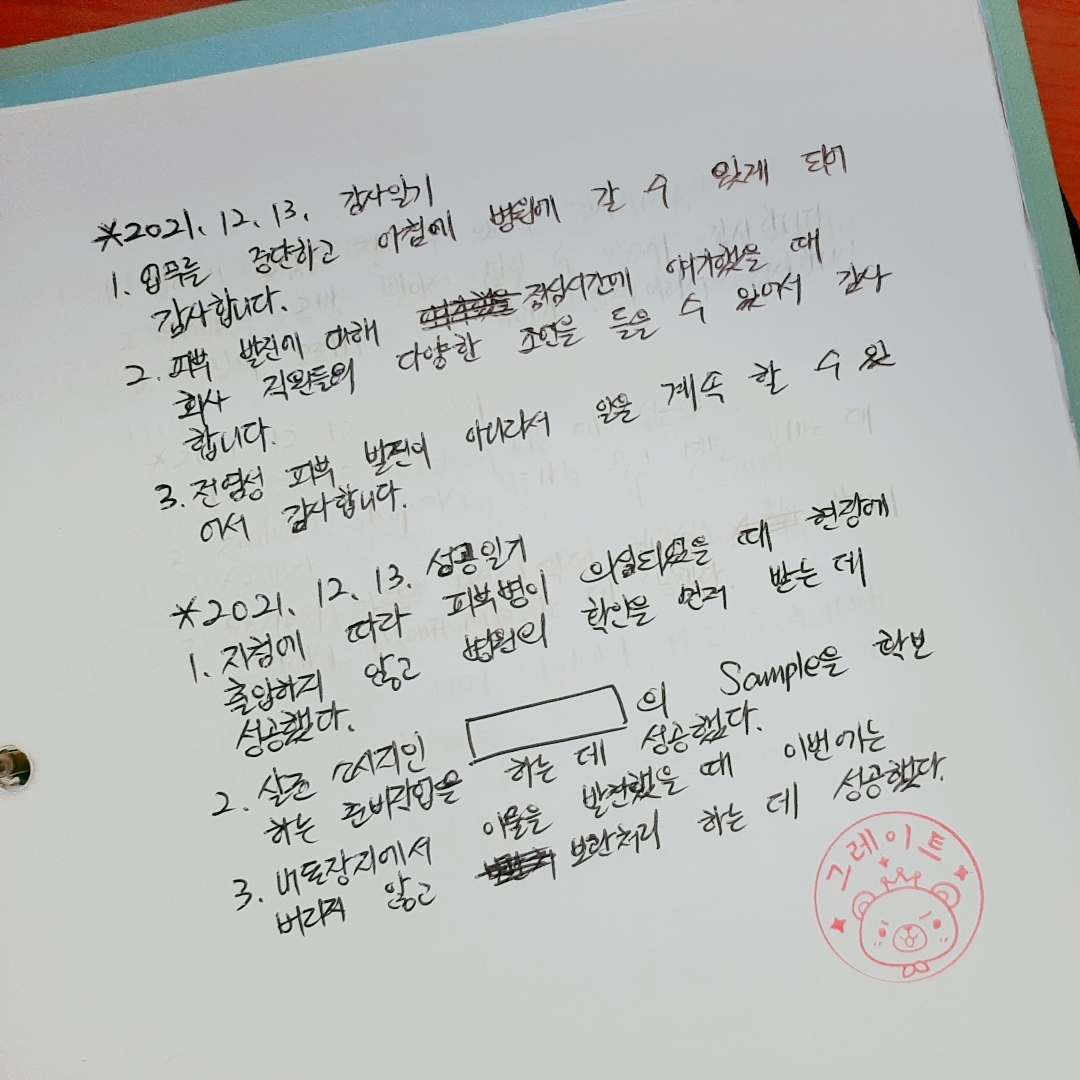 *2021. 12. 13. 감사일기
1. 업무를 중단하고 아침에 병원에 갈 수 있게 되어
감사합니다.
2. 피부 발진에 대해 점심시간에 얘기했을 때
회사 직원들의 다양한 조언을 들을 수 있어서 감사
합니다.
3. 전염성 피부 발진이 아니라서 일을 계속 할 수 있
어서 감사합니다.
*2021. 12. 13. 성공일기
1. 지침에 따라 피부병이 의심되었을 때 현장에
출입하지 않고 병원의 확인을 먼저 받는 데
성공했다.
2. 살균 소시지인 의 Sample을 확보
하는 준비작업을 하는 데 성공했다.
3. 배트장지에서 이물을 발견했을 때 이번에는
버리지 않고 보관처리 하는 데 성공했다.
그레이트